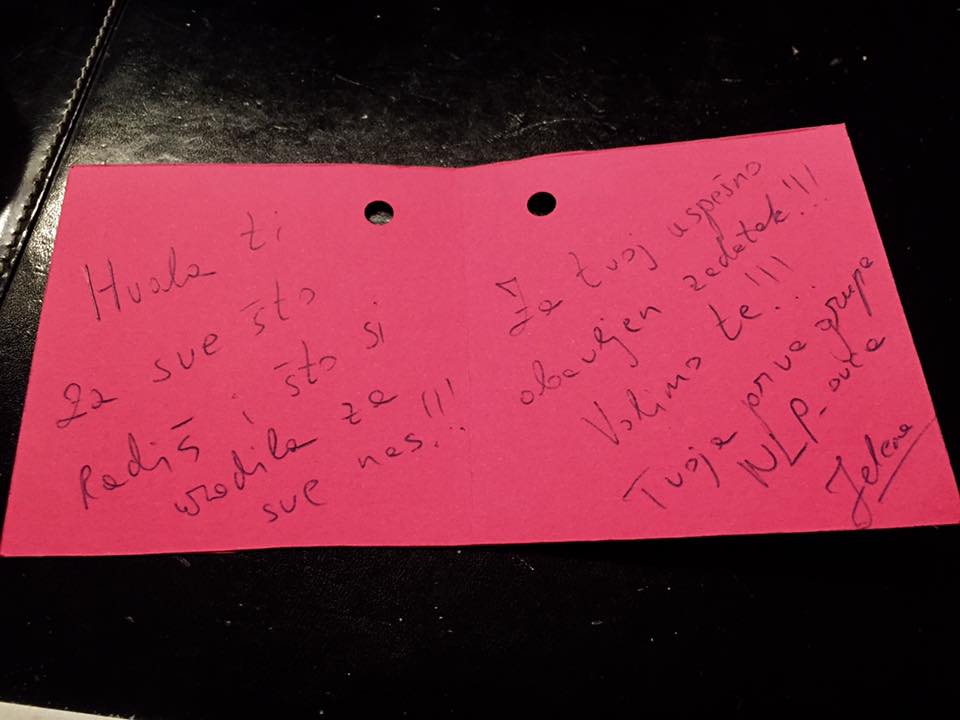 Hvala ti
za sve što
Radiš i što si
uradila za
sve nas!!!
Za tvoj uspešno
obavljen zadatak!!!
Volimo te!!!
Tvoja prva grupa
NLP_ovca
Jelena